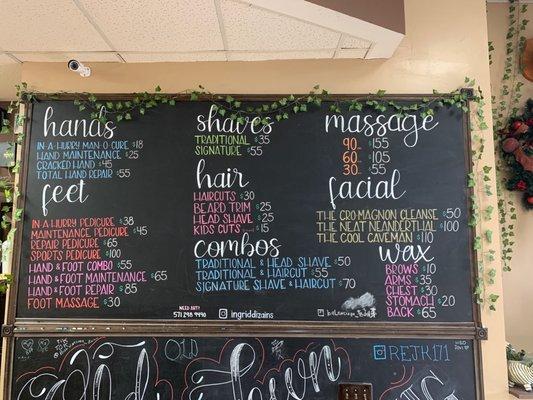 hands
IN A HURRY MAN-O-CURE $18
HAND MAINTENANCE $25
CRACKED HAND $45
TOTAL HAND REPAIR $55
feet
IN A HURRY PEDICURE $38
MAINTENANCE PEDICURE $45
REPAIR PEDICURE $65
SPORTS PEDICURE $100
HAND & FOOT COMBO $55
HAND & FOOT MAINTENANCE $65
HAND & FOOT REPAIR $85
FOOT MASSAGE $30
shaves
TRADITIONAL $35
SIGNATURE $55
hair
HAIRCUTS $30
BEARD TRIM $25
HEAD SHAVE $25
KIDS CUTS $15
combos
TRADITIONAL & HEAD SHAVE $50
TRADITIONAL & HAIRCUT $55
SIGNATURE SHAVE & HAIRCUT $70
massage
90 $155
60 $105
30 $55
facial
THE CRO MAGNON CLEANSE $50
THE NEAT NEANDERTHAL $100
THE COOL CAVEMAN $110
wax
BROWS $10
ARMS $35
CHEST $30
STOMACH $20
BACK $65
NEED ART?
ingriddizains
Old Town
@REJK171